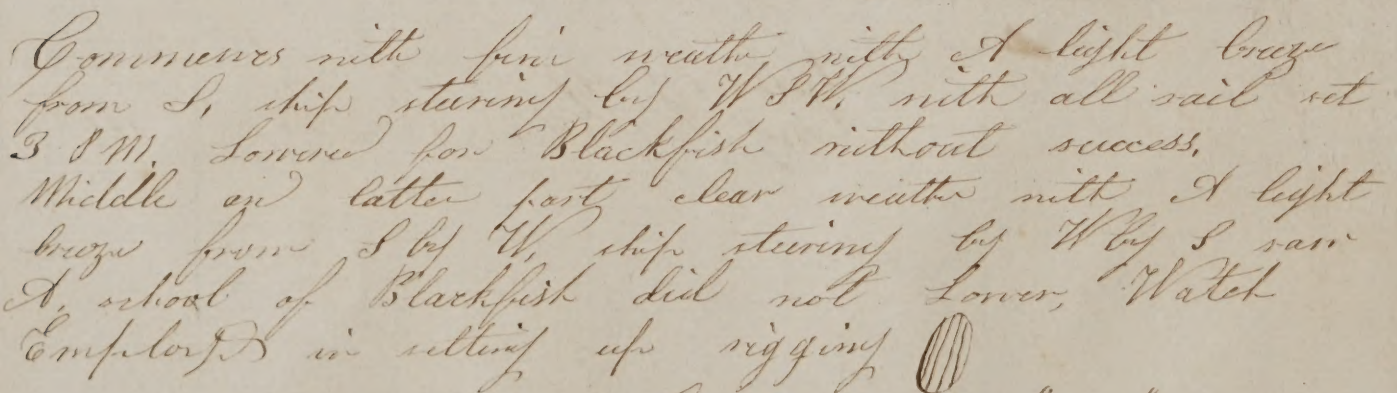 Commences with fine weathe with A light breeze
from S, ship steering by W S W. with all sail set
3 P M. Lowered for Blackfish without success.
Middle an latte part clear weathe with A light
breeze from S by W, ship steering by W by S saw
A. school of Blackfish did not Lower, Watch
Employed in setting up rigging